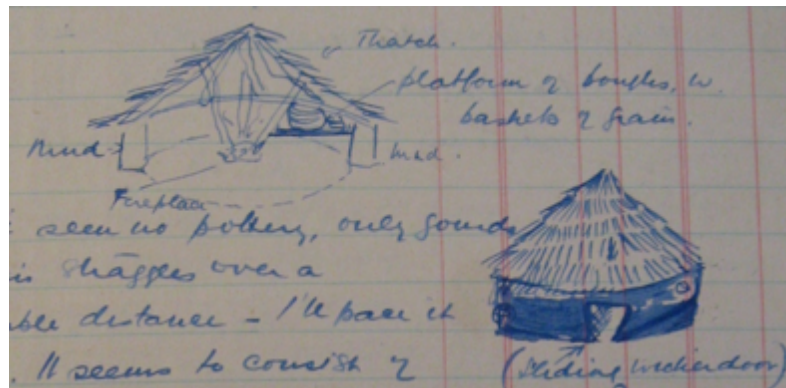 Thatch.
platform of boughs, w.
baskets of grain.
Mud
mud.
Fireplace
seen no pottery, only gourds
is straggles over a
ble distance - I'll pace it
. It seems to consist of
(sliding wicker door)